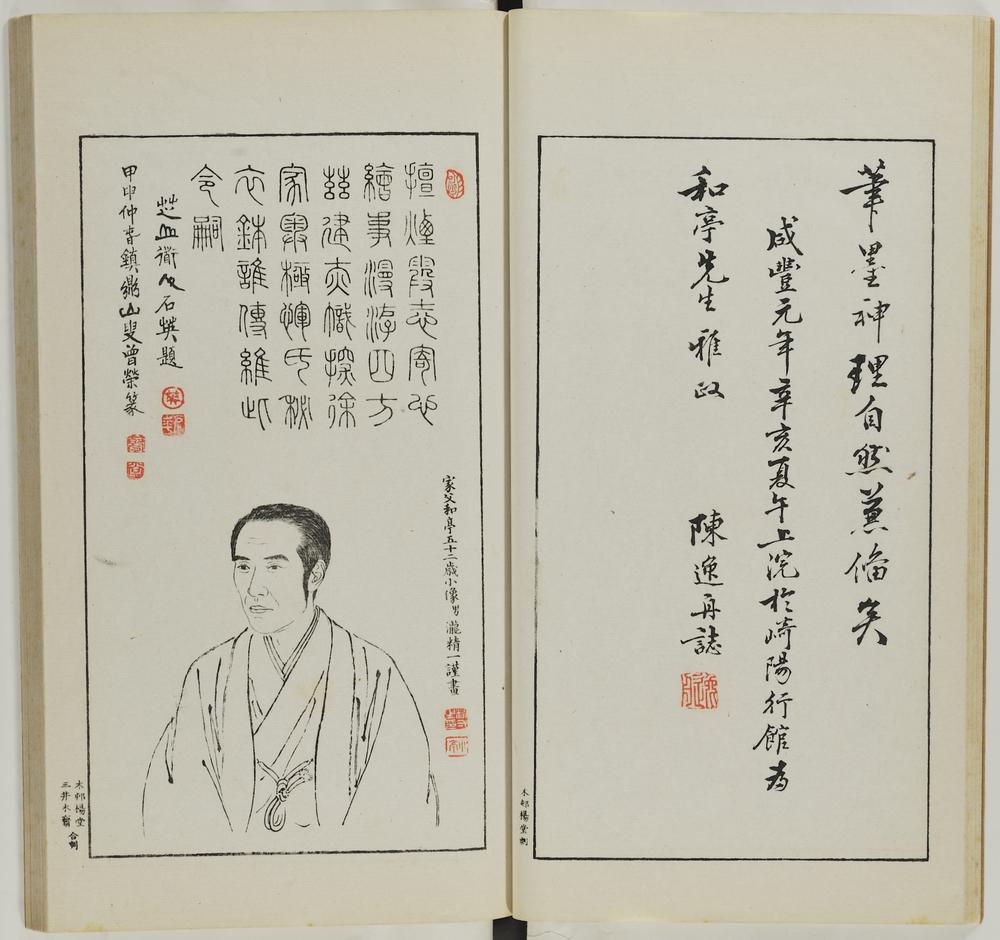 筆墨神理自然兼備矣
咸豐元年辛亥夏午上浣於崎陽行館為
和亭先生雅政
陳逸舟誌
木邨楊堂刻
擅煙霞志寄心
繪事漫游四方
茲建赤幟探徐
家奧極惲氏秘
衣鉢誰傳維此
令嗣
石埭題
甲申仲春鎮鼎山叟曾榮篆
家父和亭五十二歲小像男瀧精一謹畫
木邨楊堂
三井木
合刻